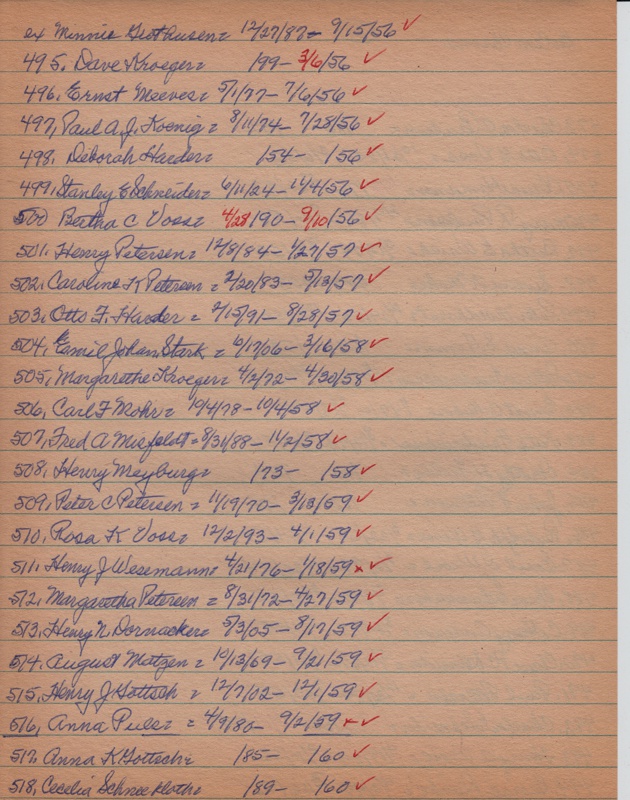 ex Minnie Grothusen = 12/27/87 – 9/15/56 ✓
495. Dave Kroeger = /99 – 3/6/56 ✓
496. Ernst Meeves = 5/1/77 – 7/6/56 ✓
497, Paul A.J. Koenig = 8/11/74 – 7/28/56 ✓
498. Deborah Harder = /54 – /56 ✓
499. Stanley E Schneider = 6/11/24 – 11/4/56 ✓
500 Bertha C Voss = 4/28/90 – 9/10/56 ✓
501. Henry Petersen = 12/8/84 – 1/27/57 ✓
502. Caroline K Petersen = 2/20/83 – 5/13/57 ✓
503. Otto F. Harder = 2/15/91 – 8/28/57 ✓
504. Emil Johan Stark = 6/17/06 – 3/16/58 ✓
505, Margarethe Kroeger = 4/2/72 – 4/30/58 ✓
506, Carl F Mohr = 10/4/78 – 10/4/58 ✓
507, Fred A Misfeldt = 8/31/88 – 11/2/58 ✓
508, Henry Meyburg = /73 – /58 ✓
509, Peter C Petersen = 11/19/70 – 3/13/59 ✓
510, Rosa K Voss = 12/2/93 – 4/1/59 ✓
511. Henry J Wesemann = 4/21/76 – 1/18/59 x ✓
512. Margaretha Petersen = 8/31/72 – 4/27/59 ✓
513. Henry N. Dornacker = 5/3/05 – 8/17/59 ✓
514. August Matzen = 10/13/69 – 9/21/59 ✓
515. Henry J Gottsch = 12/7/02 – 12/1/59 ✓
516, Anna Puls = 4/9/80 – 9/2/59 x ✓
517, Anna K Gottsch = /85 – /60 ✓
518, Cecelia Schneekloth = /89 – /60 ✓